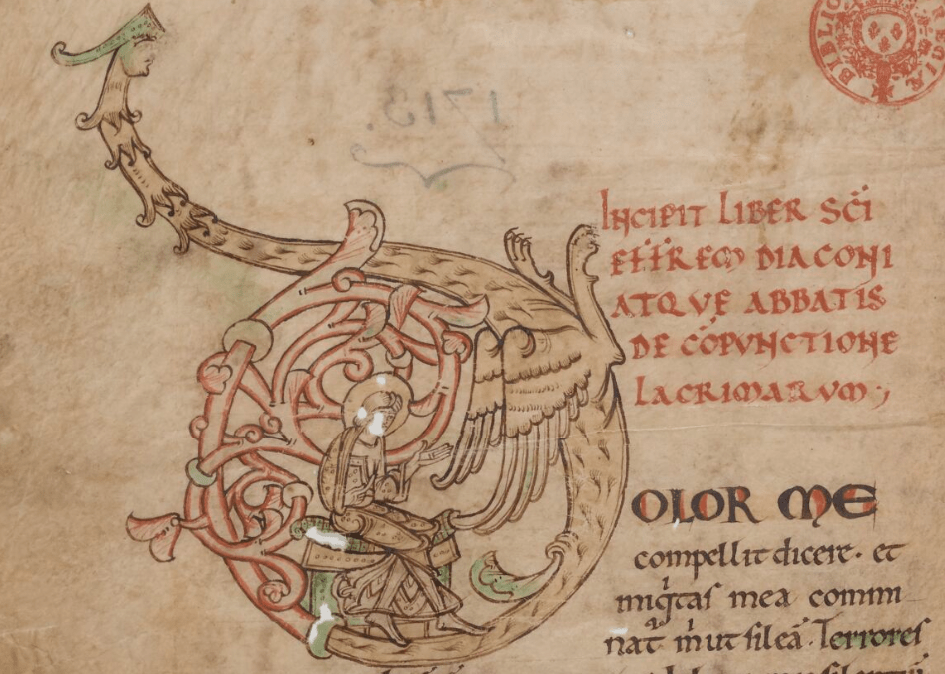 1713.
INCIPIT LIBER SC̄I
EFFREM DIACONI
ATQVE ABBATIS
DE CŌPVNCTIONE
LACRIMARVM;
OLOR ME
compellit dicere. et
mea comm
nat ut sileā. Terrores